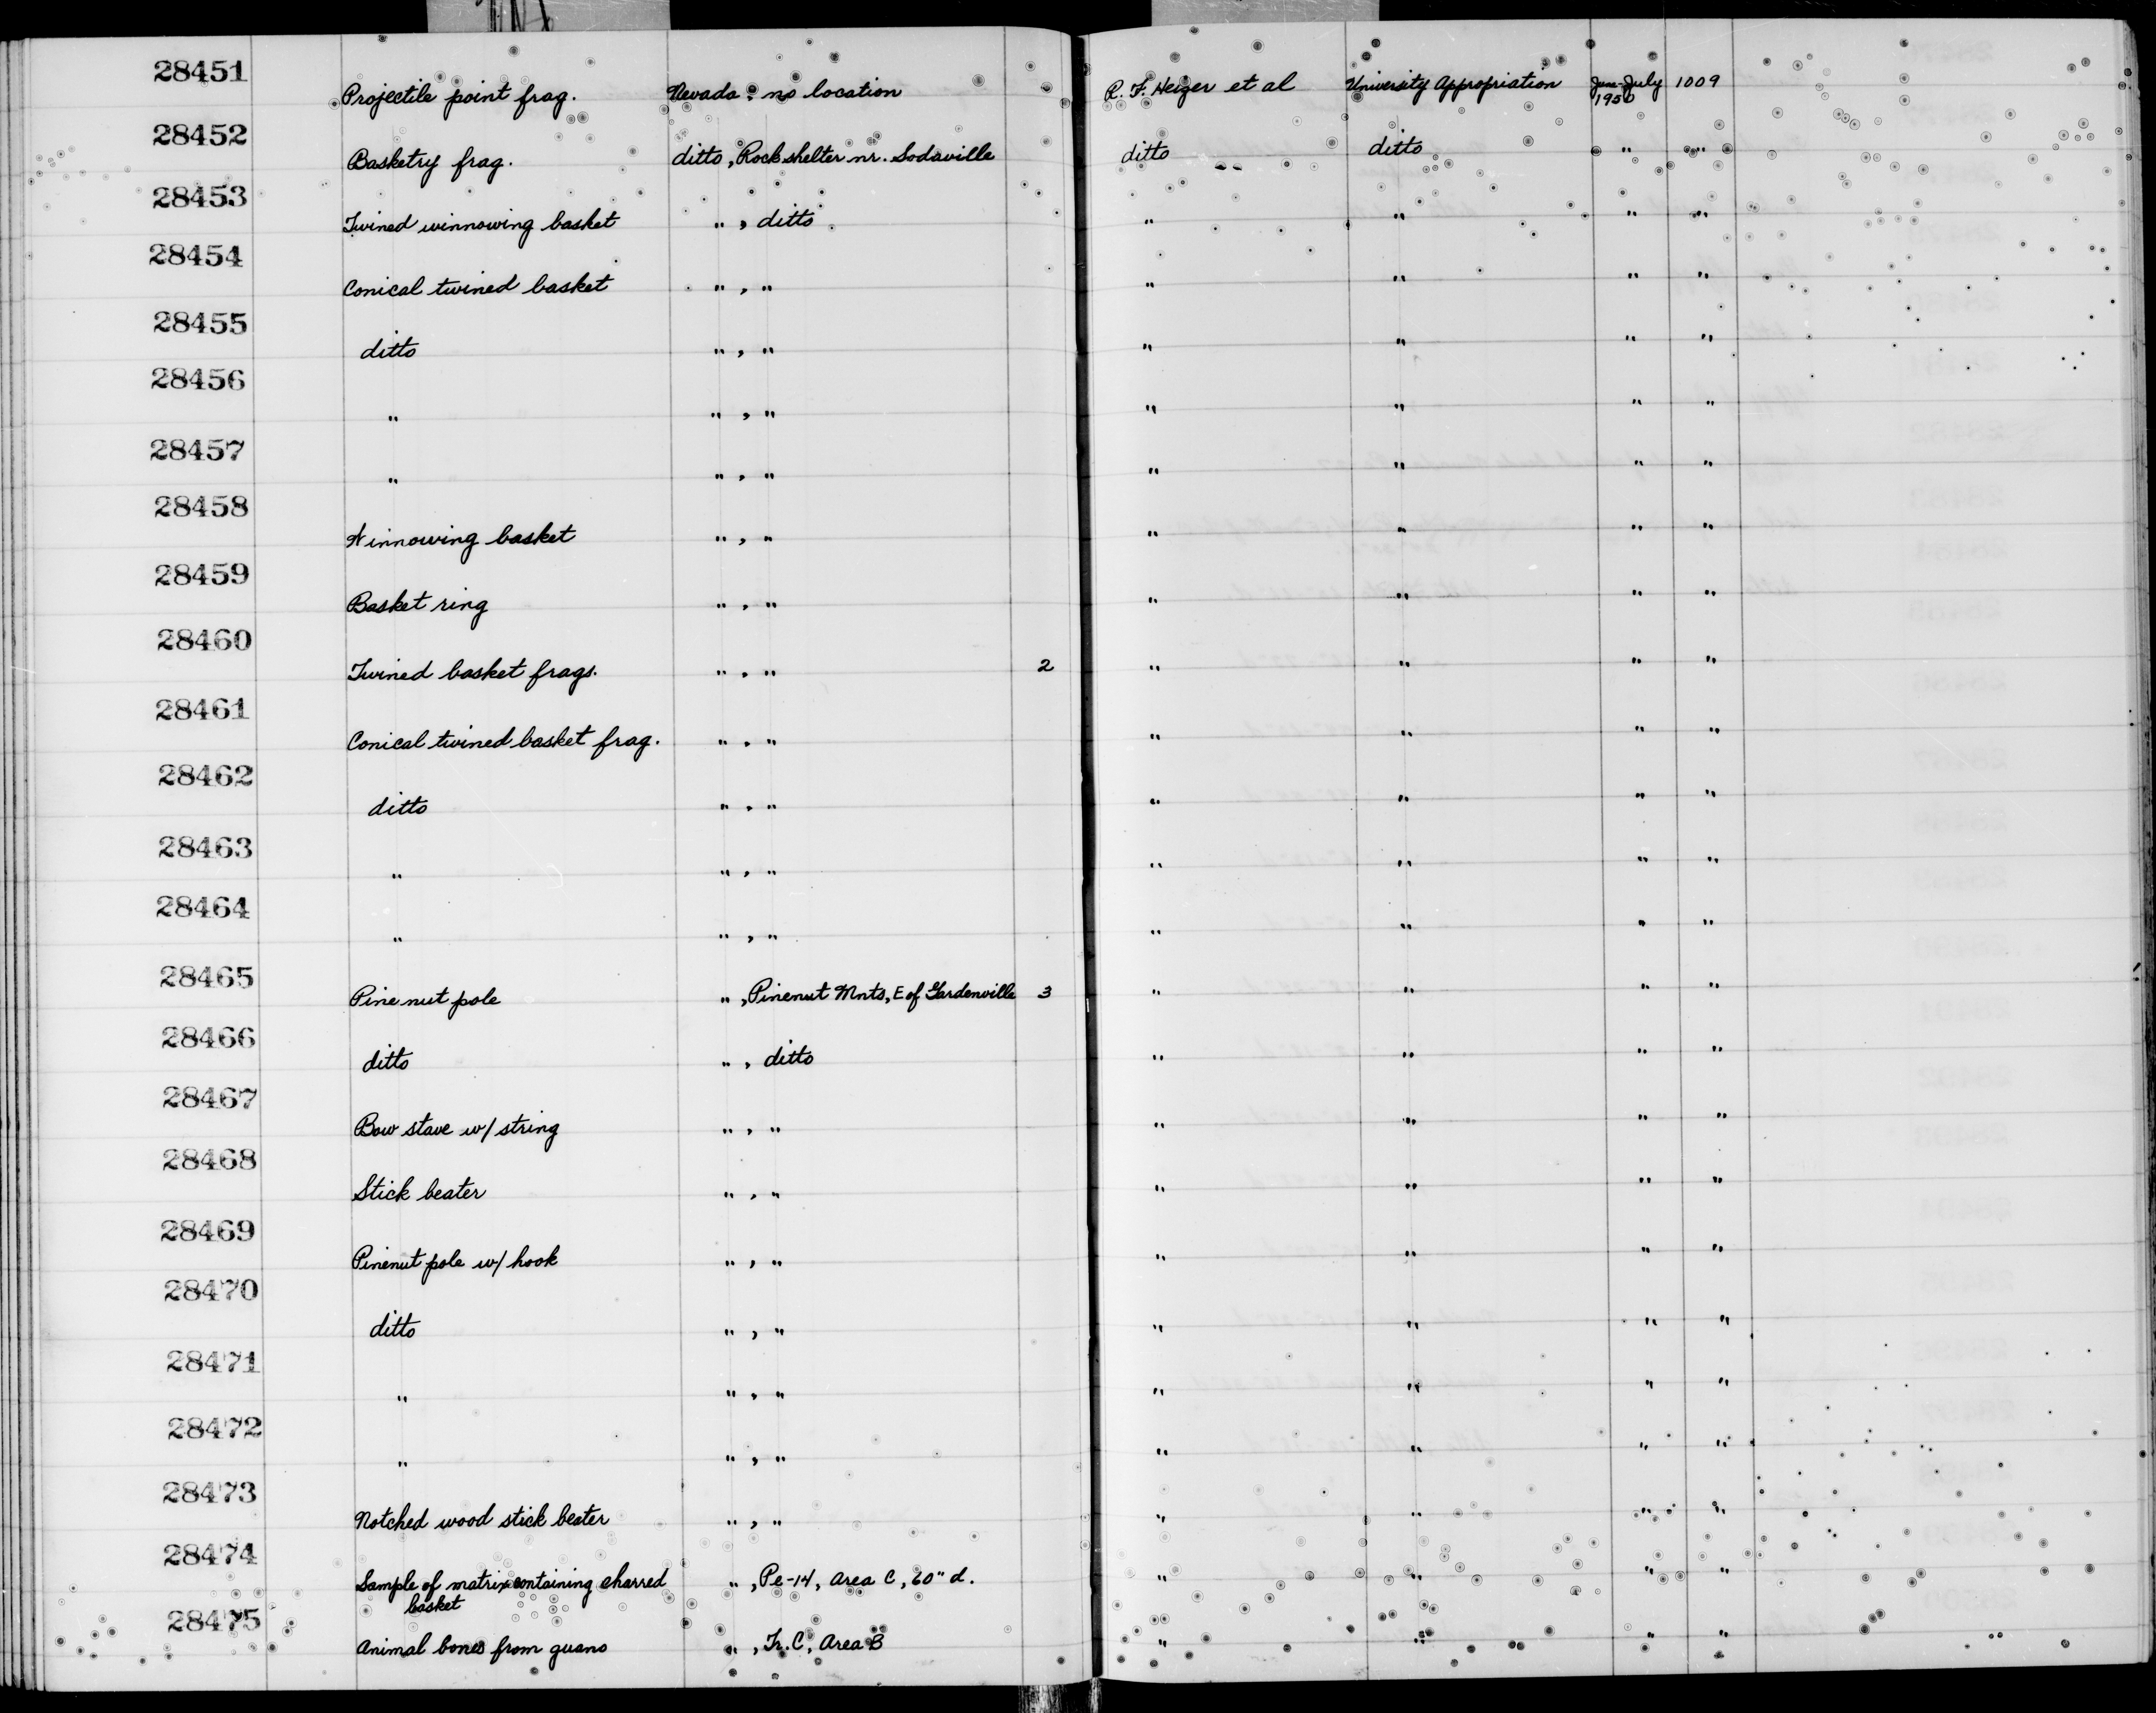 28451 Projectile point frag. Nevada: no location R. F. Heizer et al University Appropriation June-July 1950 1009
28452 Basketry frag. ditto, Rockshelter nr. Sodaville ditto ditto " "
28453 Twined winnowing basket ", ditto " " " "
28454 Conical twined basket ", " " " " "
28455 ditto ", " " " " "
28456 " ", " " " " "
28457 " ", " " " " "
28458 Winnowing basket ", " " " " "
28459 Basket ring ", " " " " "
28460 Twined basket frags. ", " 2 " " " "
28461 Conical twined basket frag. ", " " " " "
28462 ditto ", " " " " "
28463 " ", " " " " "
28464 " ", " " " " "
28465 Pine nut pole ", Pinenut Mnts, E of Gardenville 3 " " " "
28466 ditto ", ditto " " " "
28467 Bow stave w/ string ", " " " " "
28468 Stick beater ", " " " " "
28469 Pinenut pole w/ hook ", " " " " "
28470 ditto ", " " " " "
28471 " ", " " " " "
28472 " ", " " " " "
28473 Notched wood stick beater ", " " " " "
28474 Sample of matrix containing charred basket ", Pe-14, Area C, 60" d. " " " "
28475 Animal bones from guano ", Tr. C, Area B " " " "